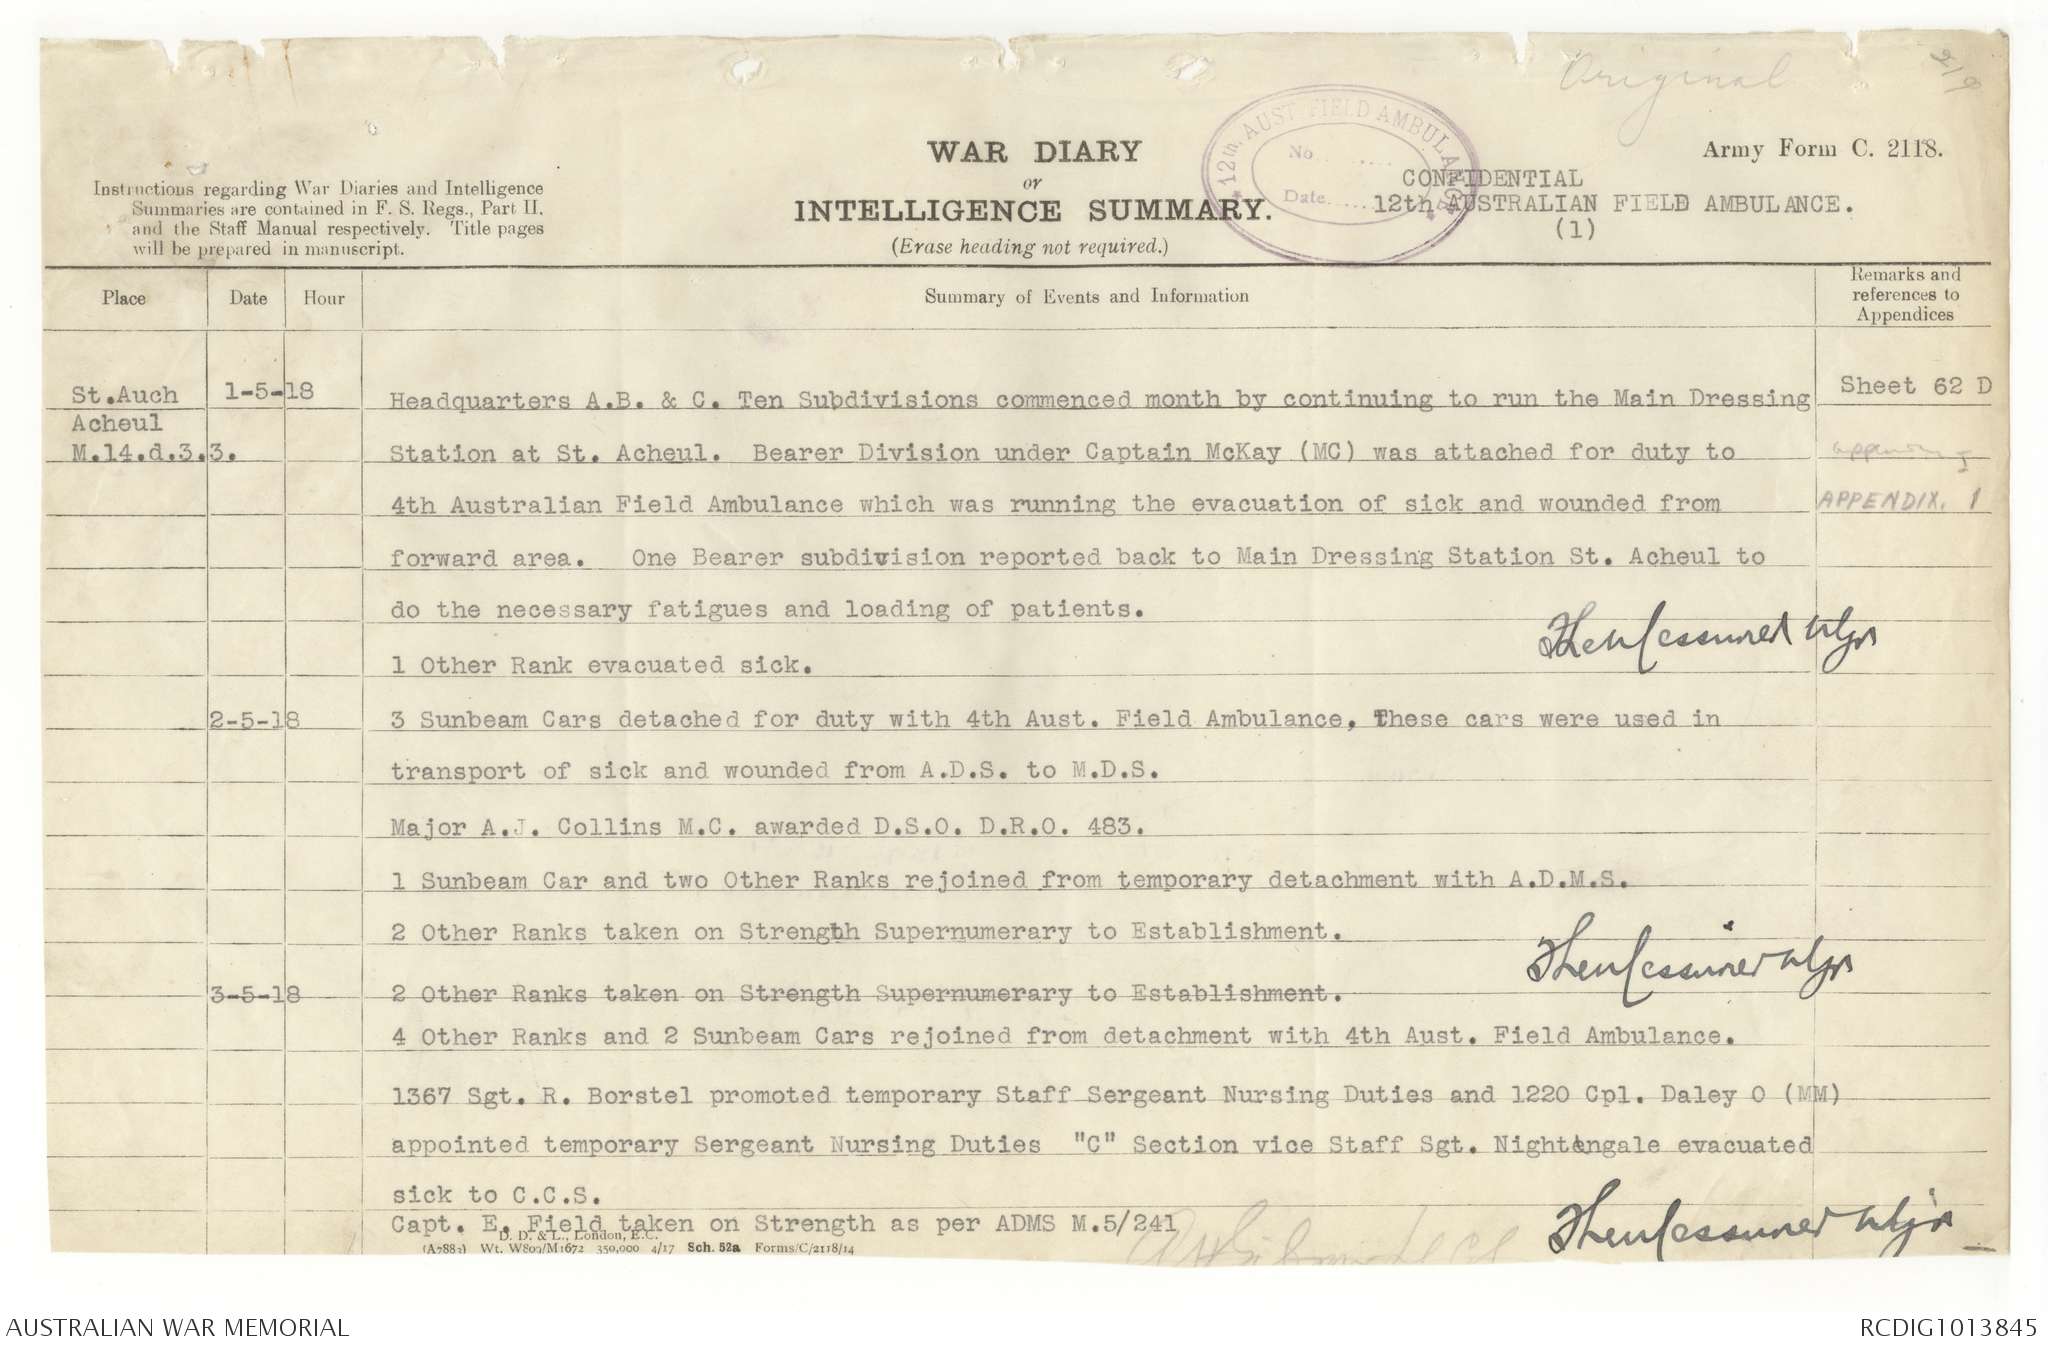 Original
12th. AUST FIELD AMBULANCE
No.......
Date.......
WAR DIARY
or
INTELLIGENCE SUMMARY.
(Erase heading not required.)
Army Form C. 2118.
CONFIDENTIAL
12th AUSTRALIAN FIELD AMBULANCE.
(1)
Instructions regarding War Diaries and Intelligence
Summaries are contained in F. S. Regs., Part II.
and the Staff Manual respectively. Title pages
will be prepared in manuscript.
Place Date Hour Summary of Events and Information Remarks and references to Appendices
St.Auch 1-5-18 Headquarters A.B. & C. Ten Subdivisions commenced month by continuing to run the Main Dressing Sheet 62 D
Acheul
M.14.d.3.3. Station at St. Acheul. Bearer Division under Captain McKay (MC) was attached for duty to
4th Australian Field Ambulance which was running the evacuation of sick and wounded from APPENDIX. 1
forward area. One Bearer subdivision reported back to Main Dressing Station St. Acheul to
do the necessary fatigues and loading of patients.
1 Other Rank evacuated sick.
2-5-18 3 Sunbeam Cars detached for duty with 4th Aust. Field Ambulance, These cars were used in
transport of sick and wounded from A.D.S. to M.D.S.
Major A.J. Collins M.C. awarded D.S.O. D.R.O. 483.
1 Sunbeam Car and two Other Ranks rejoined from temporary detachment with A.D.M.S.
2 Other Ranks taken on Strength Supernumerary to Establishment.
3-5-18 2 Other Ranks taken on Strength Supernumerary to Establishment.
4 Other Ranks and 2 Sunbeam Cars rejoined from detachment with 4th Aust. Field Ambulance.
1367 Sgt. R. Borstel promoted temporary Staff Sergeant Nursing Duties and 1220 Cpl. Daley O (MM)
appointed temporary Sergeant Nursing Duties "C" Section vice Staff Sgt. Nightingale evacuated
sick to C.C.S.
Capt. E. Field taken on Strength as per ADMS M.5/241
D. D. & L., London, E.C.
(A7883) Wt. W809/M1672 350,000 4/17 Sch. 52a Forms/C/2118/14
AUSTRALIAN WAR MEMORIAL
RCDIG1013845